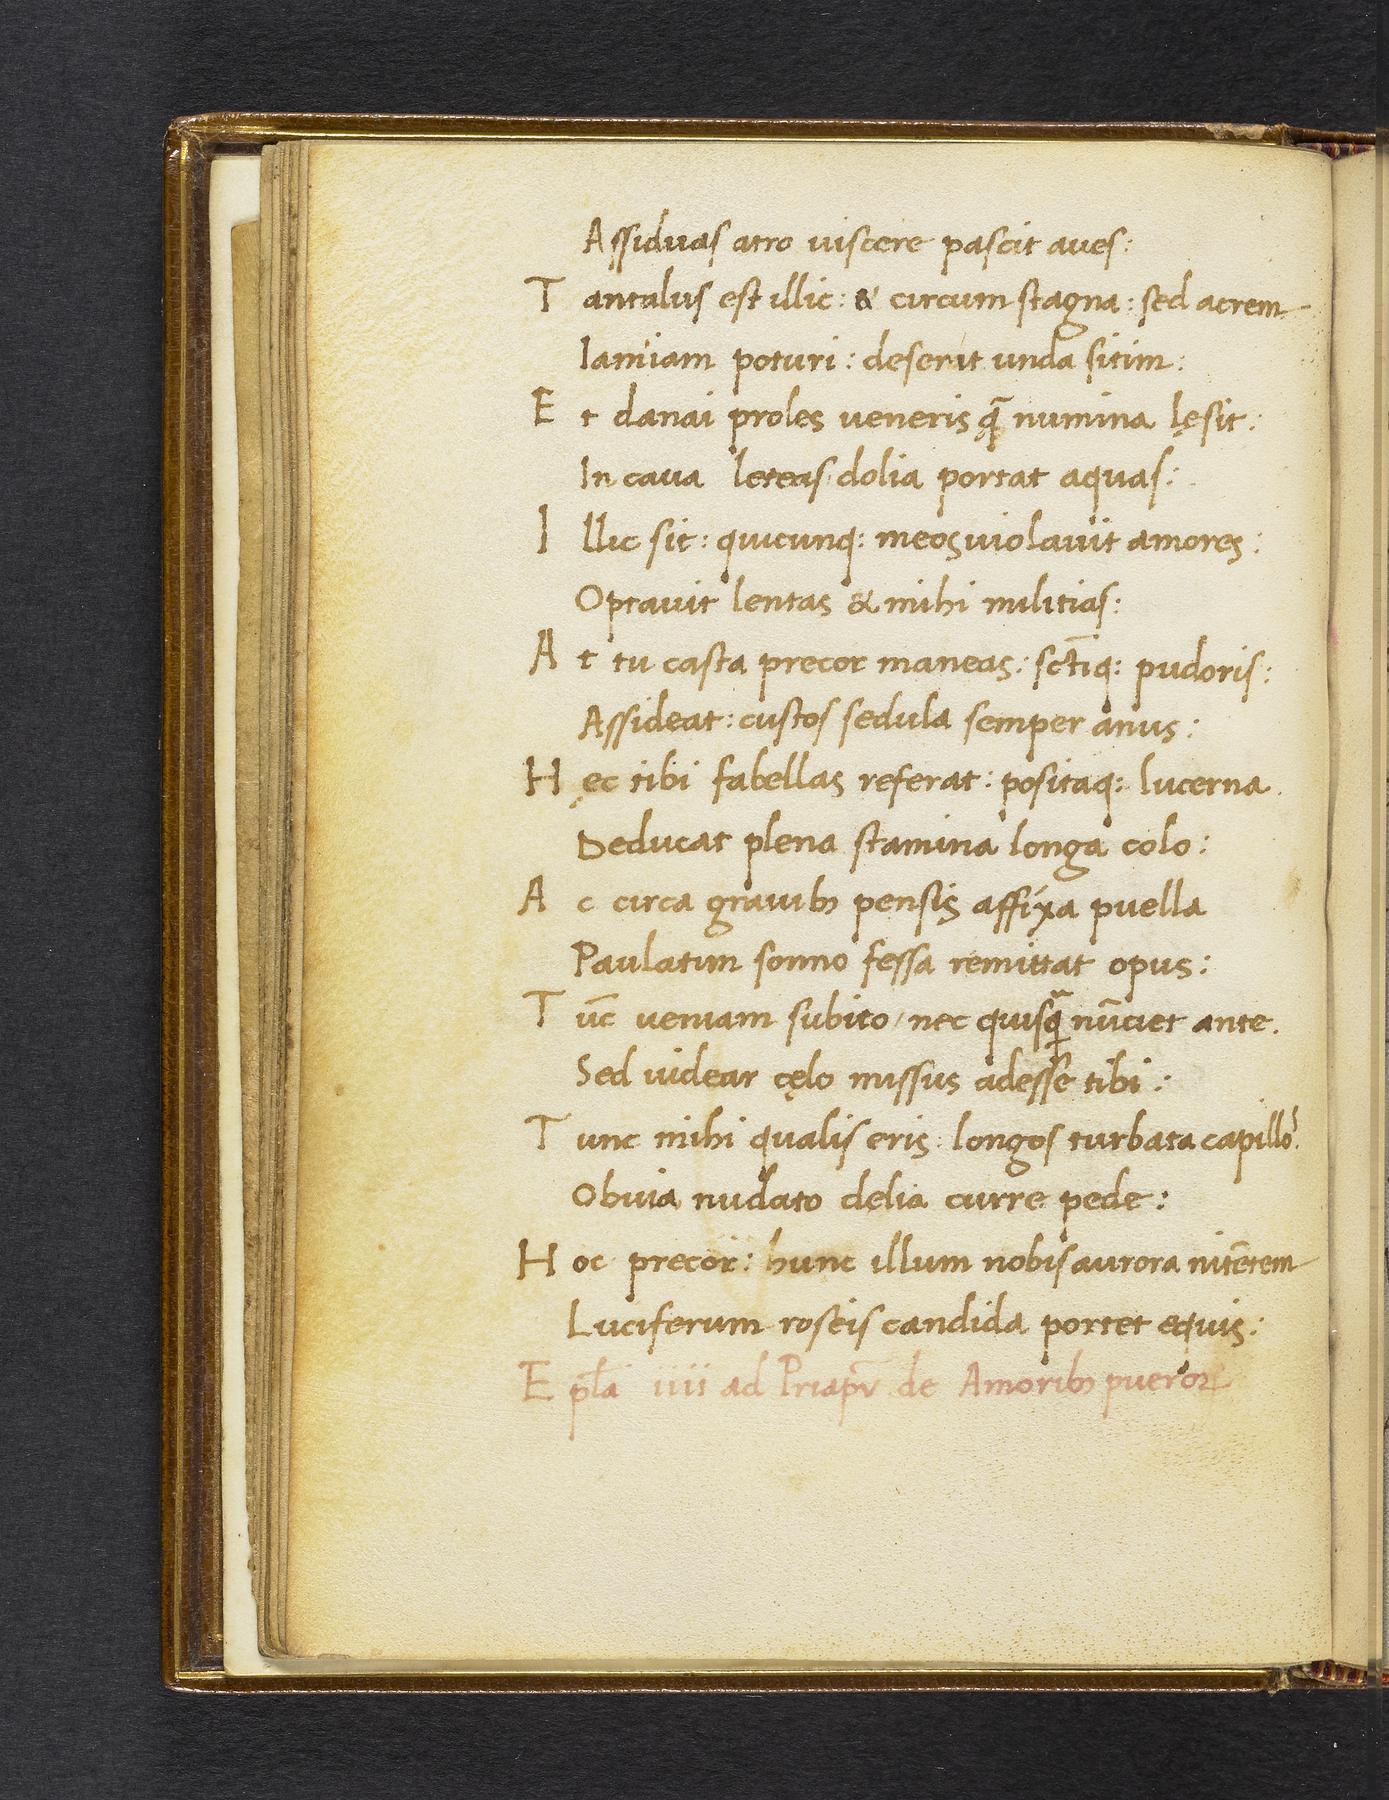 Assiduas atro uiscere pascit aues:
T antalus est illic: & circum stagna: sed acrem
Iamiam poturi: deserit unda sitim:
E t danai proles ueneris ꝙ̄ numina lęsit:
In caua leteas dolia portat aquas:
I llic sit: quicunq: meos uiolauit amores:
Optauit lentas & mihi militias:
A t tu casta precor maneas: sct̄iq: pudoris:
Assideat: custos sedula semper anus:
H ęc tibi fabellas referat: positaq: lucerna.
Deducat plena stamina longa colo:
A c circa grauibꝫ pensis affixa puella
Paulatim sonno fessa remittat opus:
T ūc ueniam subito / nec quisꝗ̄ nūciet ante.
Sed uidear cęlo missus adesse tibi:
T unc mihi qualis eris: longos turbata capilloˢ.
Obuia nudato delia curre pede:
H oc precor: hunc illum nobis aurora nitētem
Luciferum roseis candida portet equis:
E pl̄a iiii ad Priapū de Amoribꝫ pueroꝝ